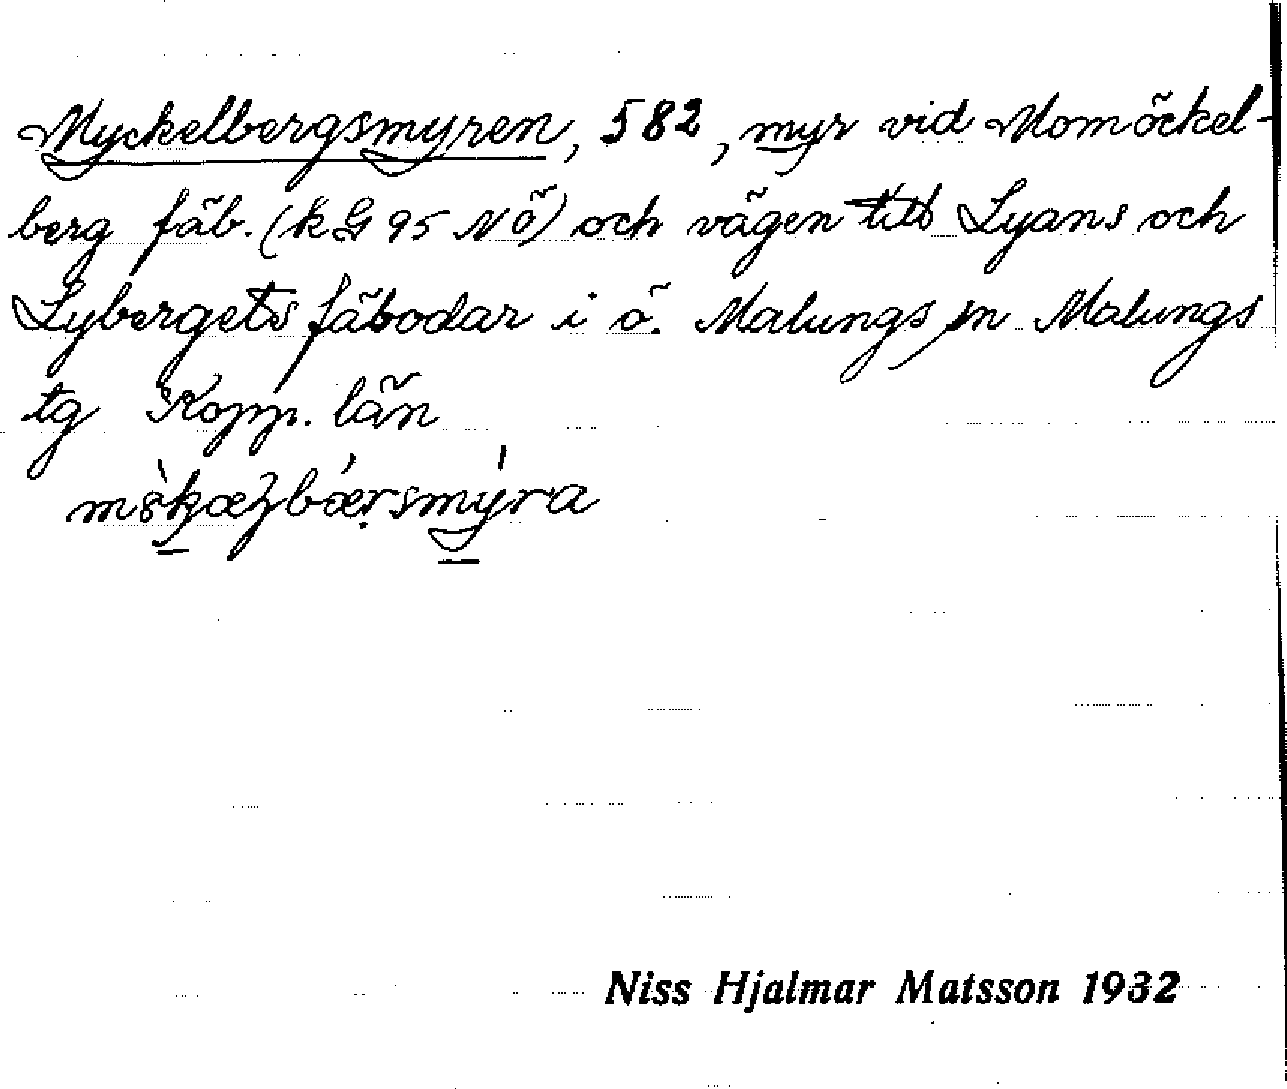 Myckelbergsmyren, 582, myr vid Momöckel-
berg fäb. (kG 95 NÖ) och vägen till Lyans och
Lybergets fäbodar i ö. Malungs sn Malungs
tg Kopp. län
Niss Hjalmar Matsson 1932